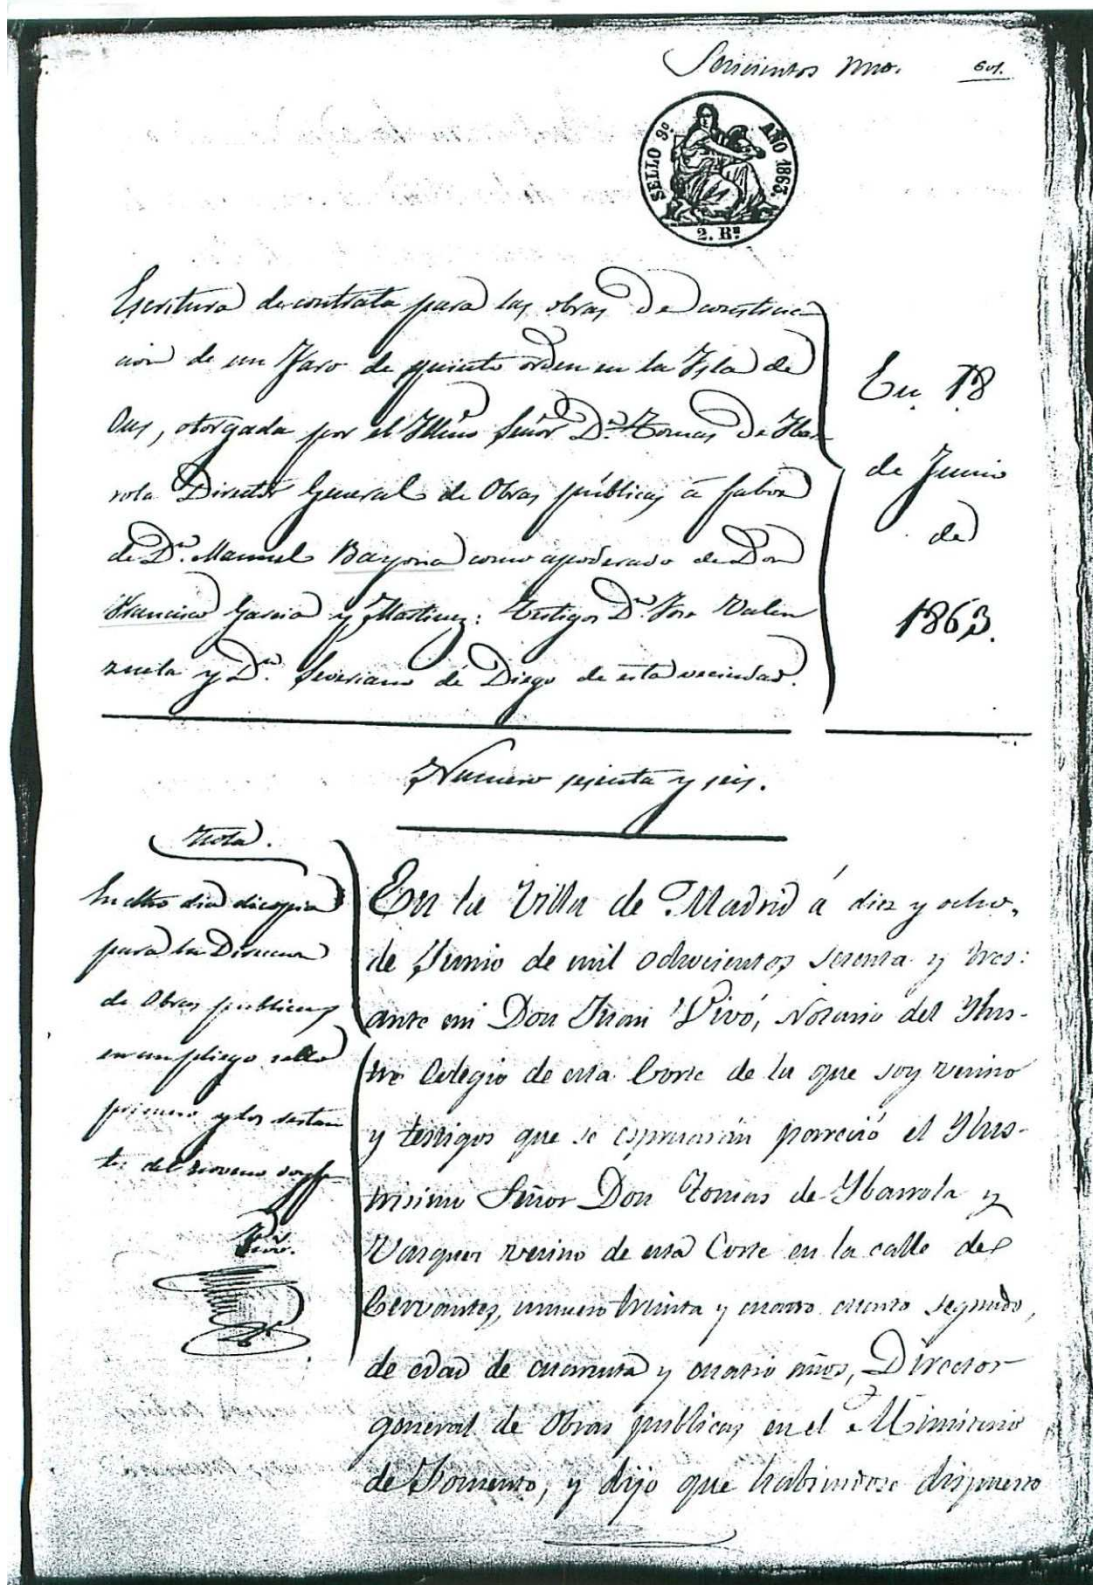 Seiscientos uno. 601.
SELLO 9º AÑO 1863.
2. Rs
Escritura de contrata para las obras de construc
cion de un Faro de quinto orden en la Isla de
Ons, otorgada por el Illmo Señor Dn. Tomas de Ibar
rola Director General de Obras públicas á fabor
de Dn. Manuel Bayona como apoderado de Don
Francisco Garcia y Martinez: Testigos Dn. Jose Valen
zuela y Dn. Severiano de Diego de esta vecindad.
En 18
de Junio
de
1863.
Numero sesenta y seis.
Nota.
En dho dia dí copia
para la Direccion
de Obras publicas
en un pliego sello
primero y los restan
tes del noveno doy fe
Vivó.
En la Villa de Madrid á diez y ocho,
de Junio de mil ochocientos sesenta y tres:
ante mi Don Juan Vivó, Notario del Ylus-
tre Colegio de esta Corte de la que soy vecino
y testigos que se espresarán pareció el Ylus-
trisimo Señor Don Tomas de Ybarrola y
Vazquez vecino de esta Corte en la calle de
Cervantes, numero treinta y cuatro cuarto segundo,
de edad de cuarenta y cuatro años, Director
general de Obras publicas en el Ministerio
de Fomento, y dijo que habiendose dispuesto